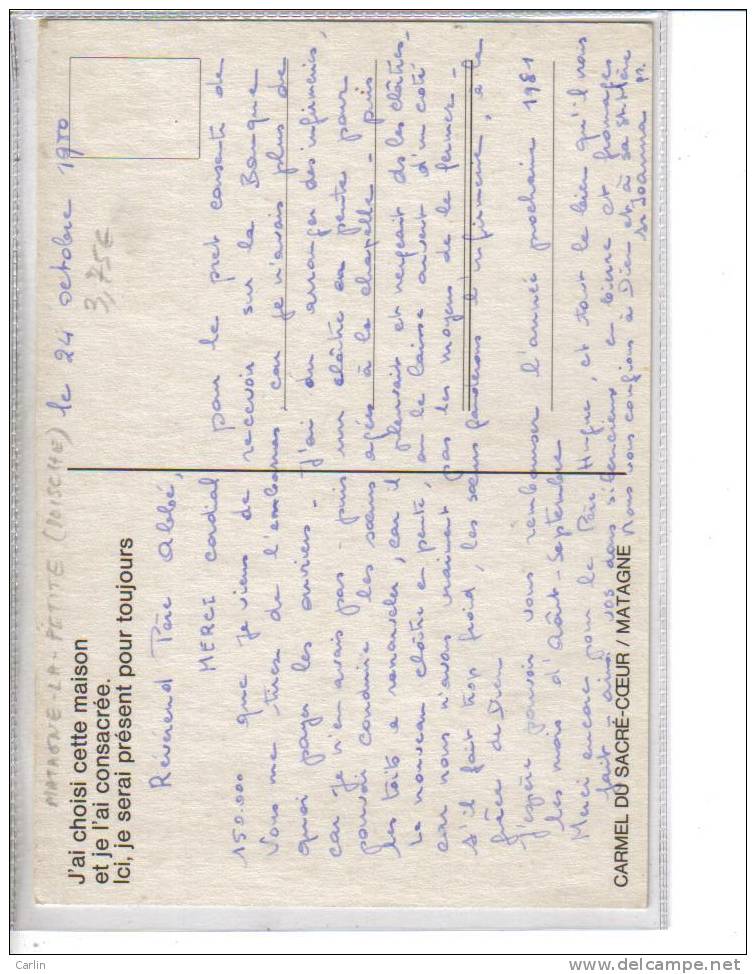 MATAGNE-LA-PETITE (DOISCHE)
le 24 octobre 1980
3,75€
J'ai choisi cette maison
et je l'ai consacrée.
Ici, je serai présent pour toujours
Révérend Père Abbé,
MERCI cordial pour le prêt consenti de
150.000 que je viens de recevoir sur la Banque
Vous me tirez de l'embarras, car je n'avais plus de
quoi payer les ouvriers - J'ai dû arranger des infirmeries,
car je n'en avais pas - puis un cloître en pente pour
pouvoir conduire les sœurs agées à la chapelle - puis
les toits à renouveler, car il pleuvait et neigeait ds les cloîtres -
Le nouveau cloître en pente, on le laisse ouvert d'un coté
car nous n'avons vraiment pas les moyens de le fermer -
S'il fait trop froid, les sœurs garderont l'infirmerie, à la
grâce de Dieu
J'espère pouvoir vous rembourser l'année prochaine 1981
les mois d'Août-Septembre
Merci encore pour le Père Hugue, et tout le bien qu'il nous
fait ainsi vos dons silencieux en bière et fromages
Nous vous confions à Dieu et à sa Ste Mère
Sr Joanna
CARMEL DU SACRÉ-CŒUR / MATAGNE
Carlin
www.delcampe.net